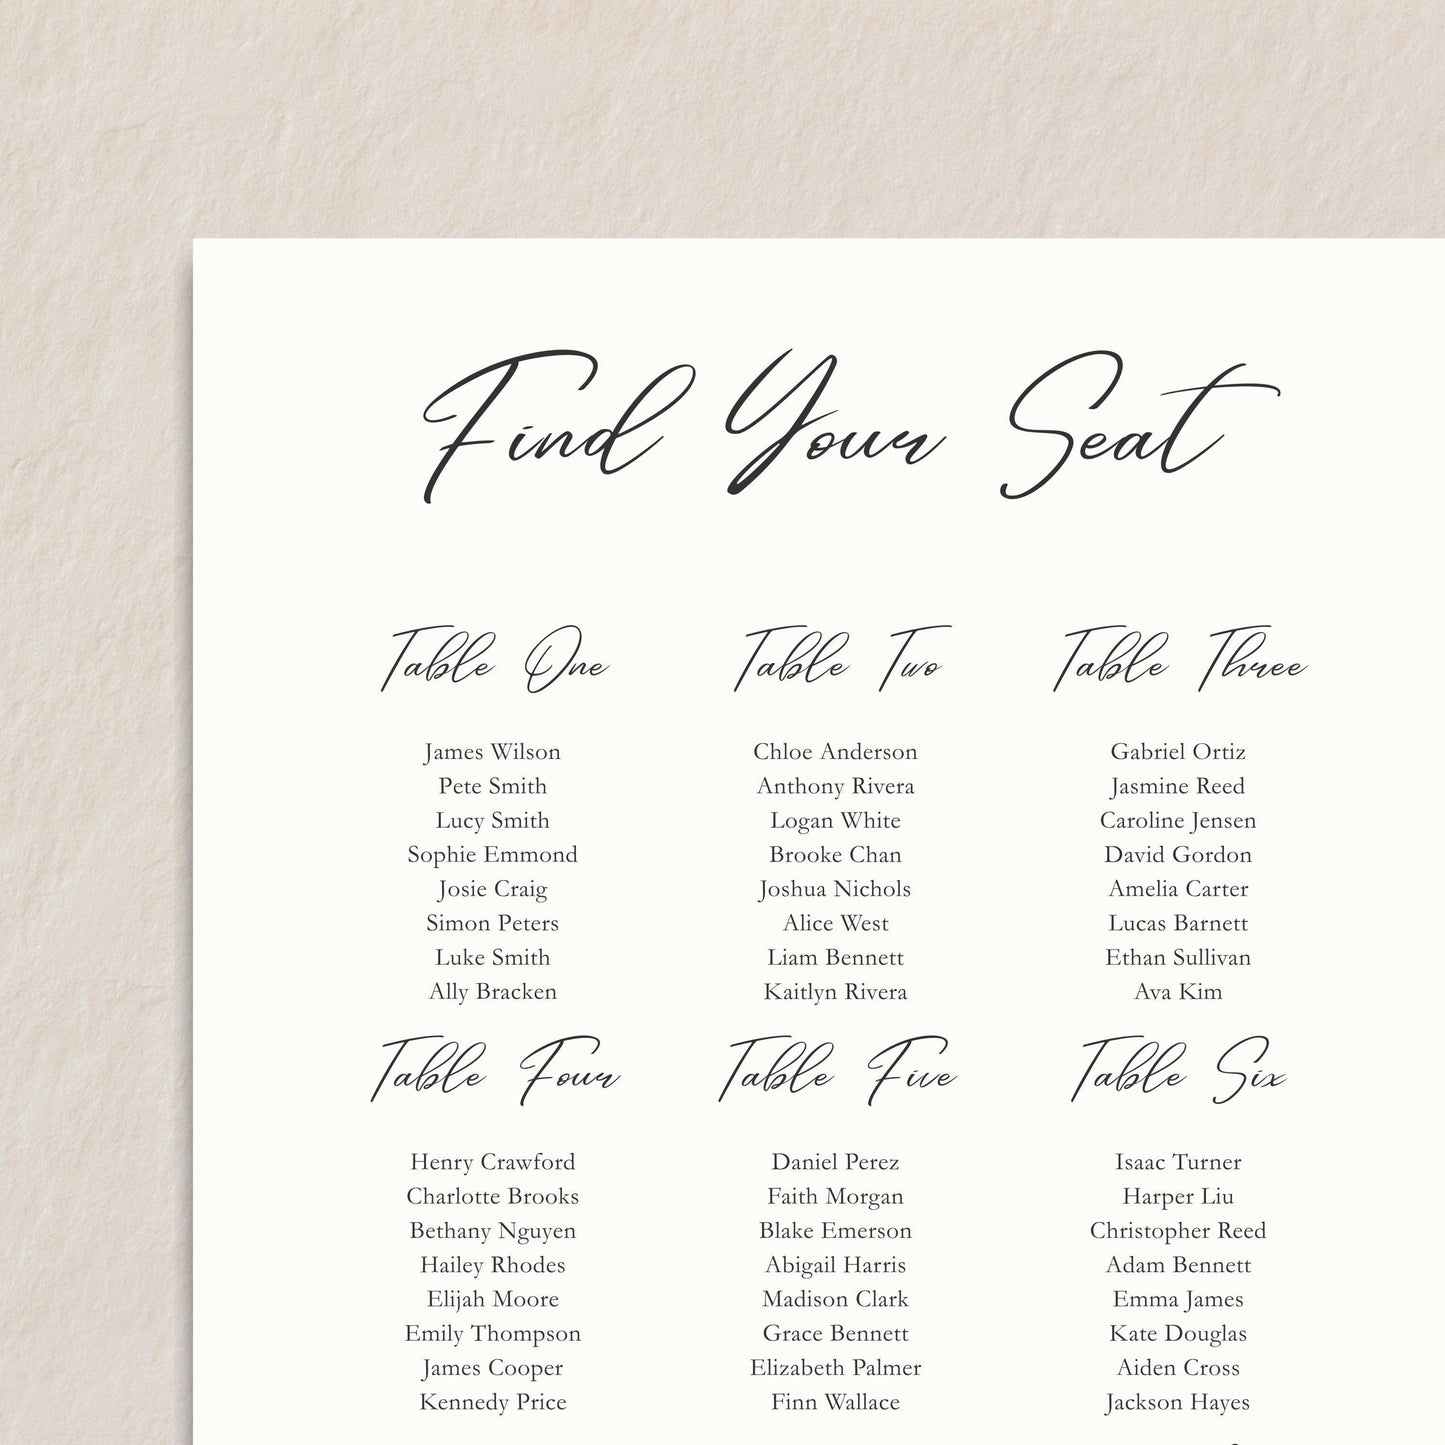 Find Your Seat
Table One
James Wilson
Pete Smith
Lucy Smith
Sophie Emmond
Josie Craig
Simon Peters
Luke Smith
Ally Bracken
Table Two
Chloe Anderson
Anthony Rivera
Logan White
Brooke Chan
Joshua Nichols
Alice West
Liam Bennett
Kaitlyn Rivera
Table Three
Gabriel Ortiz
Jasmine Reed
Caroline Jensen
David Gordon
Amelia Carter
Lucas Barnett
Ethan Sullivan
Ava Kim
Table Four
Henry Crawford
Charlotte Brooks
Bethany Nguyen
Hailey Rhodes
Elijah Moore
Emily Thompson
James Cooper
Kennedy Price
Table Five
Daniel Perez
Faith Morgan
Blake Emerson
Abigail Harris
Madison Clark
Grace Bennett
Elizabeth Palmer
Finn Wallace
Table Six
Isaac Turner
Harper Liu
Christopher Reed
Adam Bennett
Emma James
Kate Douglas
Aiden Cross
Jackson Hayes